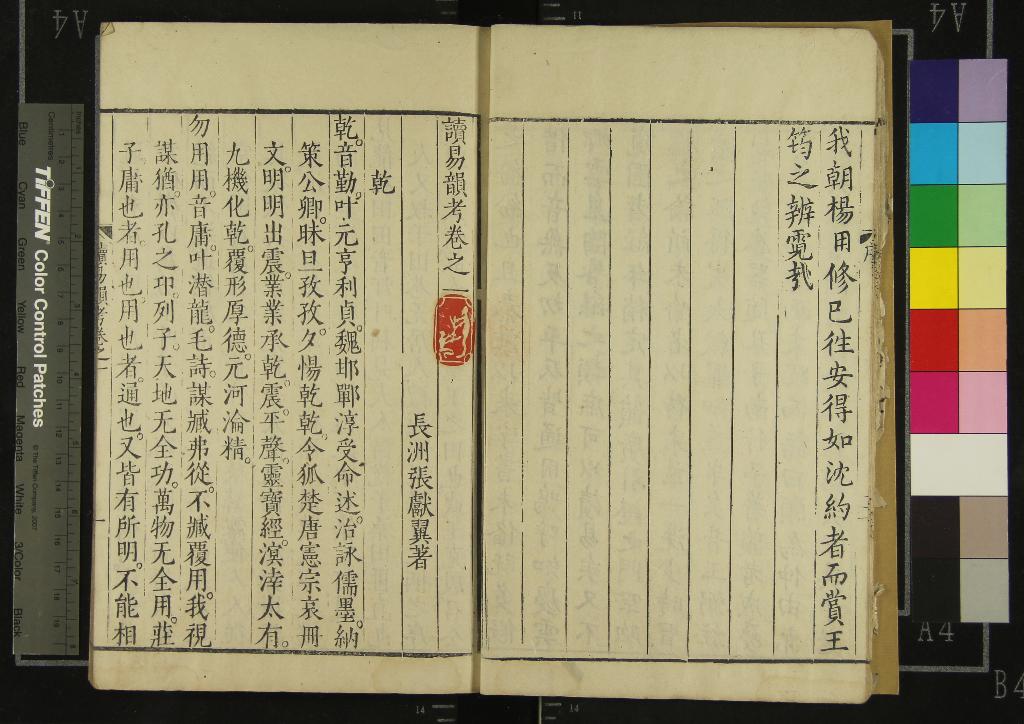 我朝楊用修已徃安得如沈約者而賞王
筠之辨霓哉
讀易韻考卷之一
長洲張獻翼著
乾
乾。音勤。叶元亨利貞。魏邯鄲淳受命述。治詠儒墨。納
策公卿。昧旦孜孜。夕惕乾乾。令狐楚唐憲宗哀冊
文。明明出震。業業承乾。震。平聲。靈寶經。溟涬太有。
九機化乾。覆形厚德。元河淪精。
勿用用。音庸。叶潛龍。毛詩。謀臧弗從。不臧覆用。我視
謀猶。亦孔之卭。列子。天地无全功。萬物无全用。莊
子。庸也者。用也。用也者。通也。又皆有所明。不能相
讀易韻考卷之一
序
TIFFEN Color Control Patches
© The Tiffen Company, 2007
Centimetres
Inches
Blue
Cyan
Green
Yellow
Red
Magenta
White
3/Color
Black
A4
A4
A4
B4
11
14
14